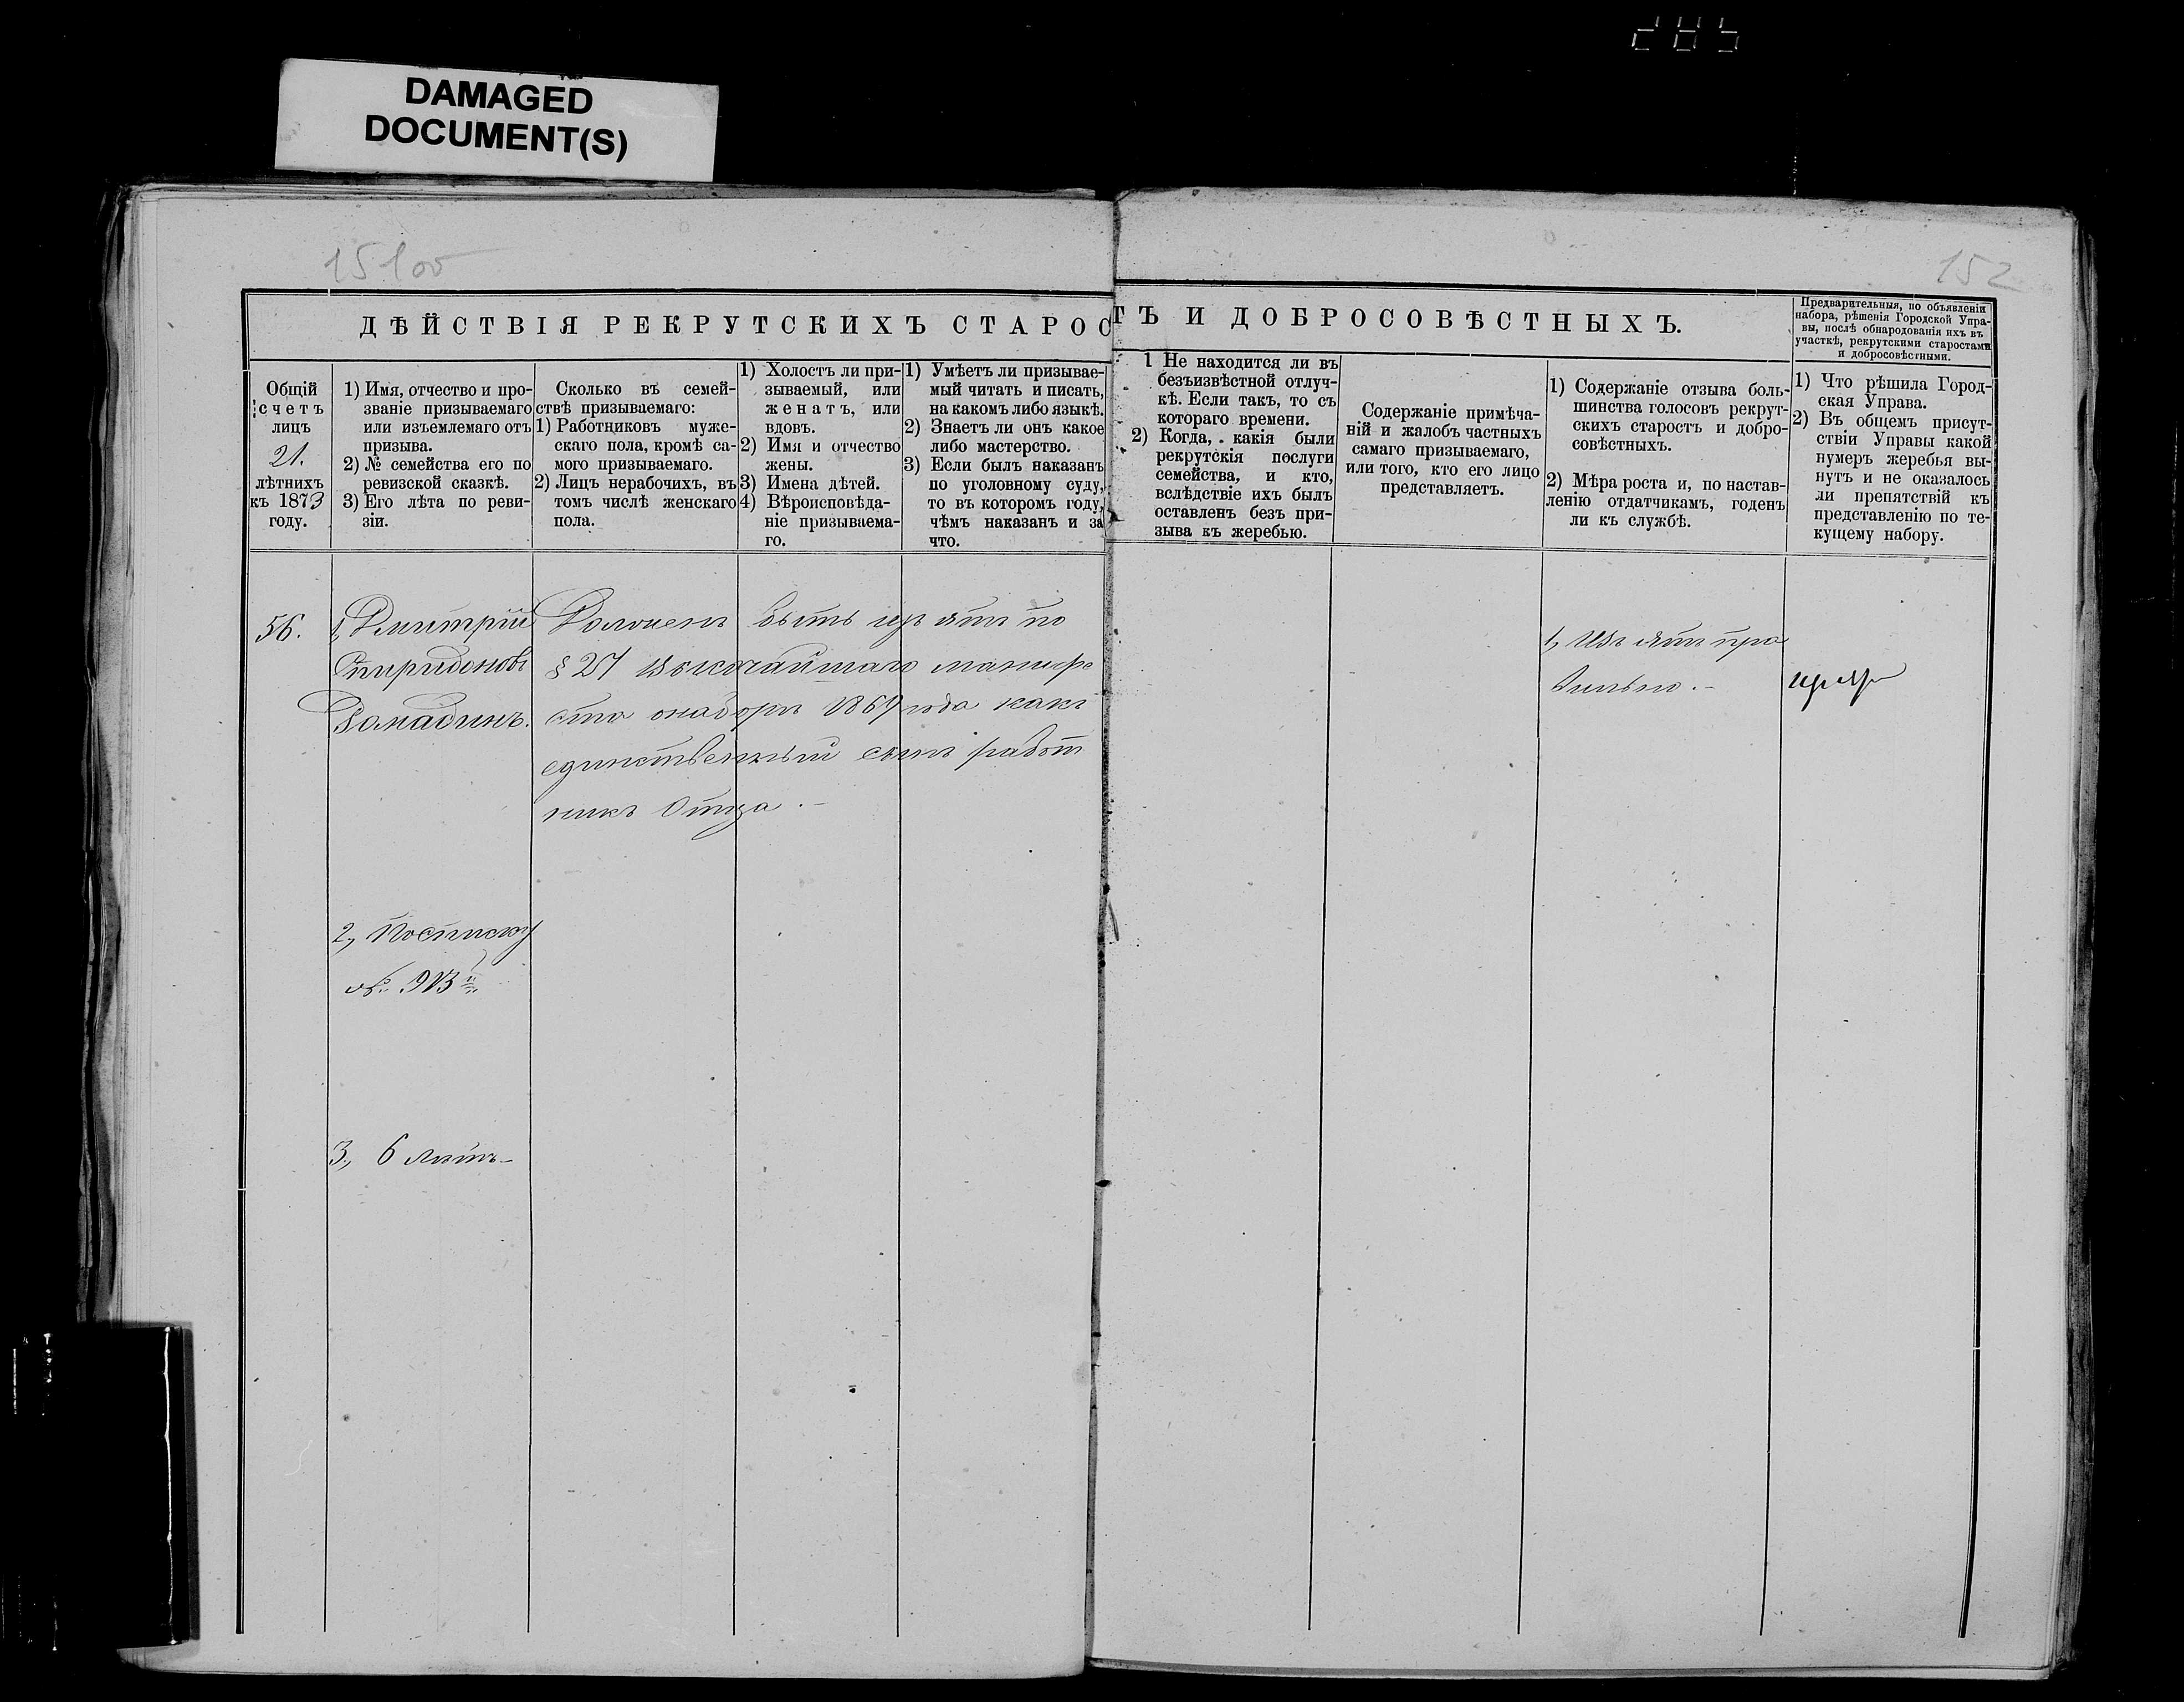 DAMAGED
DOCUMENT(S)
152
ДѢЙСТВІЯ РЕКРУТСКИХЪ СТАРОС
ТЪ И ДОБРОСОВѢСТНЫХЪ.
Предварительныя, по объявленіи
набора, рѣшенія Городской Упра-
вы, послѣ обнародованія ихъ въ
участкѣ, рекрутскими старостами
и добросовѣстными.
Общій
счетъ
лицъ
21.
лѣтнихъ
къ 1873
году.
1) Имя, отчество и про-
званіе призываемаго
или изъемлемаго отъ
призыва.
2) № семейства его по
ревизской сказкѣ.
3) Его лѣта по реви-
зіи.
Сколько въ семей-
ствѣ призываемаго:
1) Работниковъ муже-
скаго пола, кромѣ са-
мого призываемаго.
2) Лицъ нерабочихъ, въ
томъ числѣ женскаго
пола.
1) Холостъ ли при-
зываемый, или
женатъ, или
вдовъ.
2) Имя и отчество
жены.
3) Имена дѣтей.
4) Вѣроисповѣда-
ніе призываема-
го.
1) Умѣетъ ли призывае-
мый читать и писать,
на какомъ либо языкѣ.
2) Знаетъ ли онъ какое
либо мастерство.
3) Если былъ наказанъ
по уголовному суду,
то въ которомъ году,
чѣмъ наказанъ и за
что.
1 Не находится ли въ
безъизвѣстной отлуч-
кѣ. Если такъ, то съ
котораго времени.
2) Когда, какія были
рекрутскія послуги
семейства, и кто,
вслѣдствіе ихъ былъ
оставленъ безъ при-
зыва къ жеребью.
Содержаніе примѣча-
ній и жалобъ частныхъ
самаго призываемаго,
или того, кто его лицо
представляетъ.
1) Содержаніе отзыва боль-
шинства голосовъ рекрут-
скихъ старостъ и добро-
совѣстныхъ.
2) Мѣра роста и, по настав-
ленію отдатчикамъ, годенъ
ли къ службѣ.
1) Что рѣшила Город-
ская Управа.
2) Въ общемъ присут-
ствіи Управы какой
нумеръ жеребья вы-
нутъ и не оказалось
ли препятствій къ
представленію по те-
кущему набору.
56.
1, Дмитрій
Спиридоновъ
Домадинъ.
2, Посписку
об. 913
3, 6 лѣтъ
Долженъ быть изъятъ по
§ 27 Высочайшаго манифе
ста онаборѣ 1869 года какъ
единственный сынъ работ
никъ Отца.
1, Изъятъ пра
вильно.